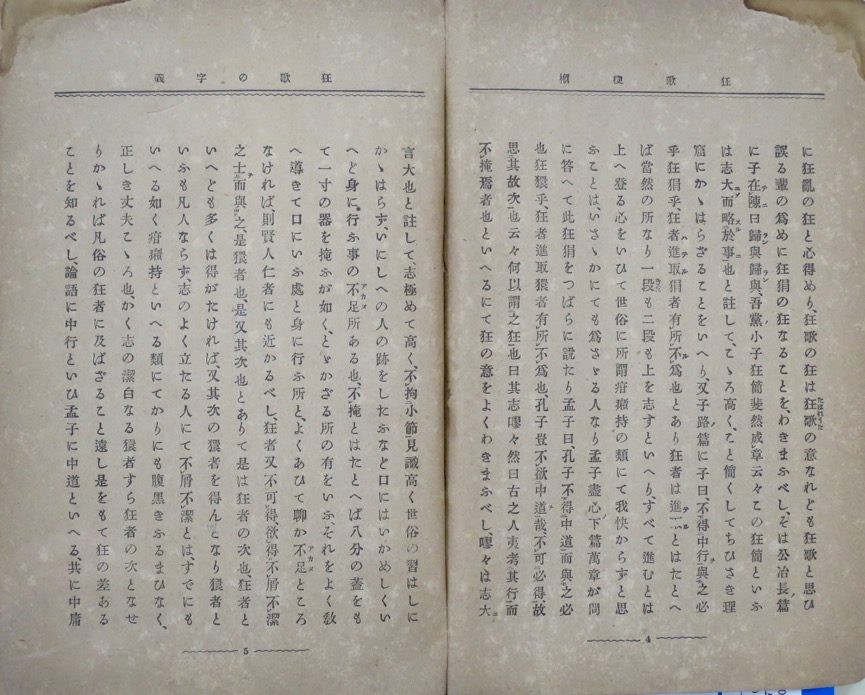 狂歌梗概
に狂亂の狂と心得めり、狂歌の狂は狂歌の意なれども狂歌と思ひ
誤る輩の爲めに狂狷の狂なることを、わきまふべし、そは公冶長篇
に子在陳曰歸與歸與吾黨小子狂簡斐然成章云々この狂簡といふ
は志大而略於事也と註して、こゝろ高く、こと簡くしてちひさき理
窟にかゝはらざることをいへり、又子路篇に子曰、不得中行與之必
乎狂狷乎、狂者進取狷者有所不爲也とあり狂者は進とはたとへ
ば當然の所なり一段も二段も上を志すといへり、すべて進むとは
上へ登る心をいひて世俗に所謂疳癪持の類にて我快からずと思
ふことは、いさゝかにても爲さゞる人なり孟子盡心下篇萬章が問
に答へて此狂狷をつばらに説たり孟子曰、孔子不得中道而與之必
也狂獧乎、狂者進取獧者有所不爲也、孔子豈不欲中道哉不可必得、故
思其故次也云々何以謂之狂也曰其志嘐々然曰古之人夷考其行而
不掩焉者也といへるにて狂の意をよくわきまふべし、嘐々は志大
4
狂歌の字義
言大也と註して、志極めて高く、不拘小節見識高く世俗の習はしに
かゝはらず、いにしへの人の跡をしたふなど口にはいかめしくい
へど身に行ふ事の不足所ある也、不掩とはたとへば八分の蓋をも
て一寸の器を掩ふが如く、とゞかざる所の有をいふ、それをよく敎
へ導きて口にいふ處と身に行ふ所と、よくあひて聊か不足ところ
なければ則賢人仁者にも近かるべし、狂者又不可得、欲得不屑不潔
之士而與之、是獧者也、是又其次也とありて是は狂者の次也狂者と
いへども多くは得がたければ、又其次の獧者を得んとなり獧者と
いふも凡人ならず、志のよく立たる人にて不屑不潔とは、すでにも
いへる如く疳癪持といへる類にてかりにも腹黑きふるまひなく、
正しき丈夫こゝろ也、かく志の潔白なる獧者すら狂者の次となせ
りかゝれば凡俗の狂者に及ばざること遠し是をもて狂の差ある
ことを知るべし、論語に中行といひ孟子に中道といへる、共に中庸
5